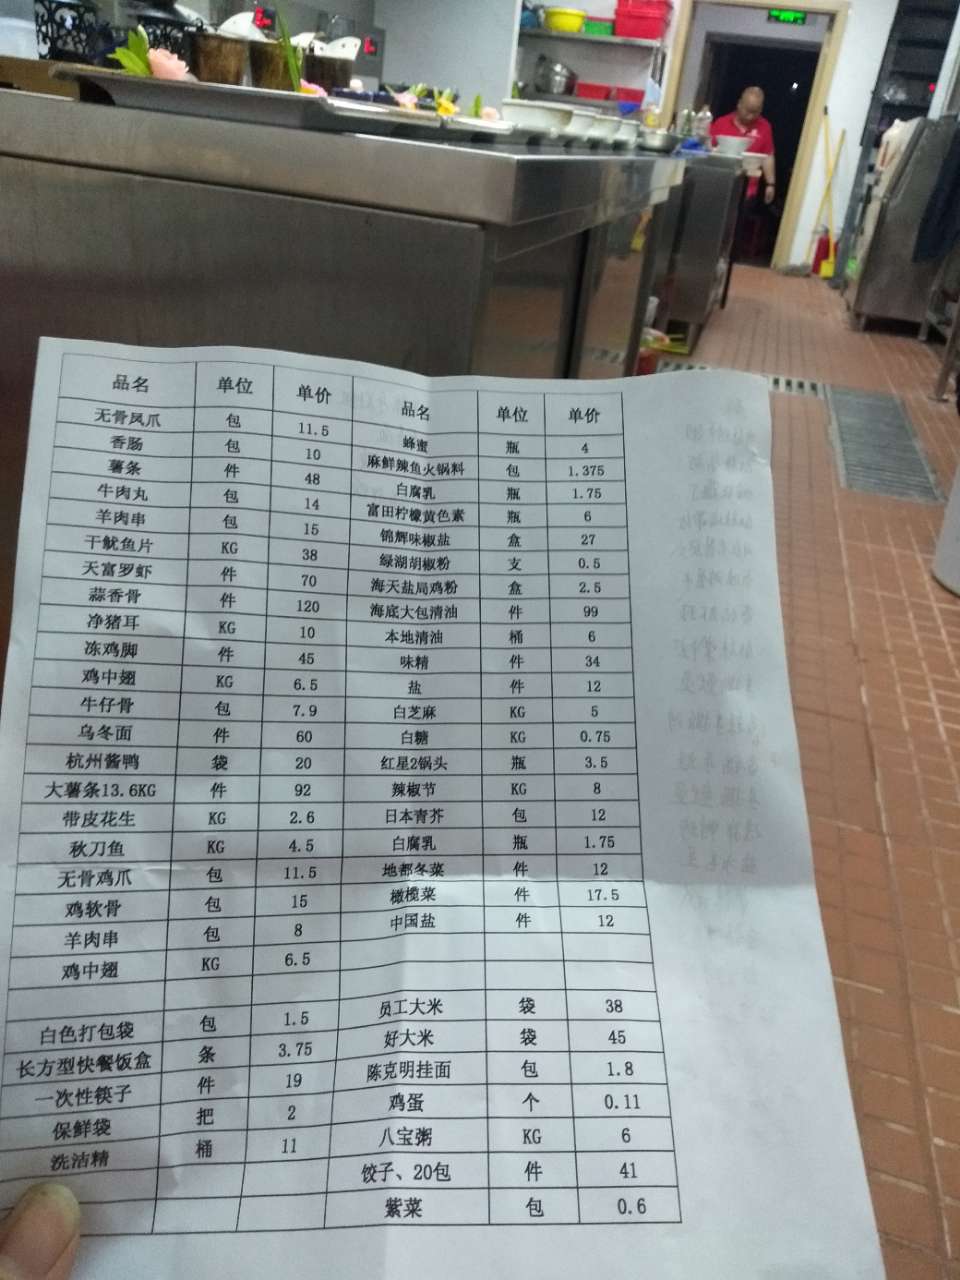 品名 单位 单价 品名 单位 单价
无骨凤爪 包 11.5 蜂蜜 瓶 4
香肠 包 10 麻鲜辣鱼火锅料 包 1.375
薯条 件 48 白腐乳 瓶 1.75
牛肉丸 包 14 富田柠檬黄色素 瓶 6
羊肉串 包 15 锦辉味椒盐 盒 27
干鱿鱼片 KG 38 绿湖胡椒粉 支 0.5
天富罗虾 件 70 海天盐局鸡粉 盒 2.5
蒜香骨 件 120 海底大包清油 件 99
净猪耳 KG 10 本地清油 桶 6
冻鸡脚 件 45 味精 件 34
鸡中翅 KG 6.5 盐 件 12
牛仔骨 包 7.9 白芝麻 KG 5
乌冬面 件 60 白糖 KG 0.75
杭州酱鸭 袋 20 红星2锅头 瓶 3.5
大薯条13.6KG 件 92 辣椒节 KG 8
带皮花生 KG 2.6 日本青芥 包 12
秋刀鱼 KG 4.5 白腐乳 瓶 1.75
无骨鸡爪 包 11.5 地都冬菜 件 12
鸡软骨 包 15 橄榄菜 件 17.5
羊肉串 包 8 中国盐 件 12
鸡中翅 KG 6.5
白色打包袋 包 1.5 员工大米 袋 38
长方型快餐饭盒 条 3.75 好大米 袋 45
一次性筷子 件 19 陈克明挂面 包 1.8
保鲜袋 把 2 鸡蛋 个 0.11
洗洁精 桶 11 八宝粥 KG 6
饺子、20包 件 41
紫菜 包 0.6